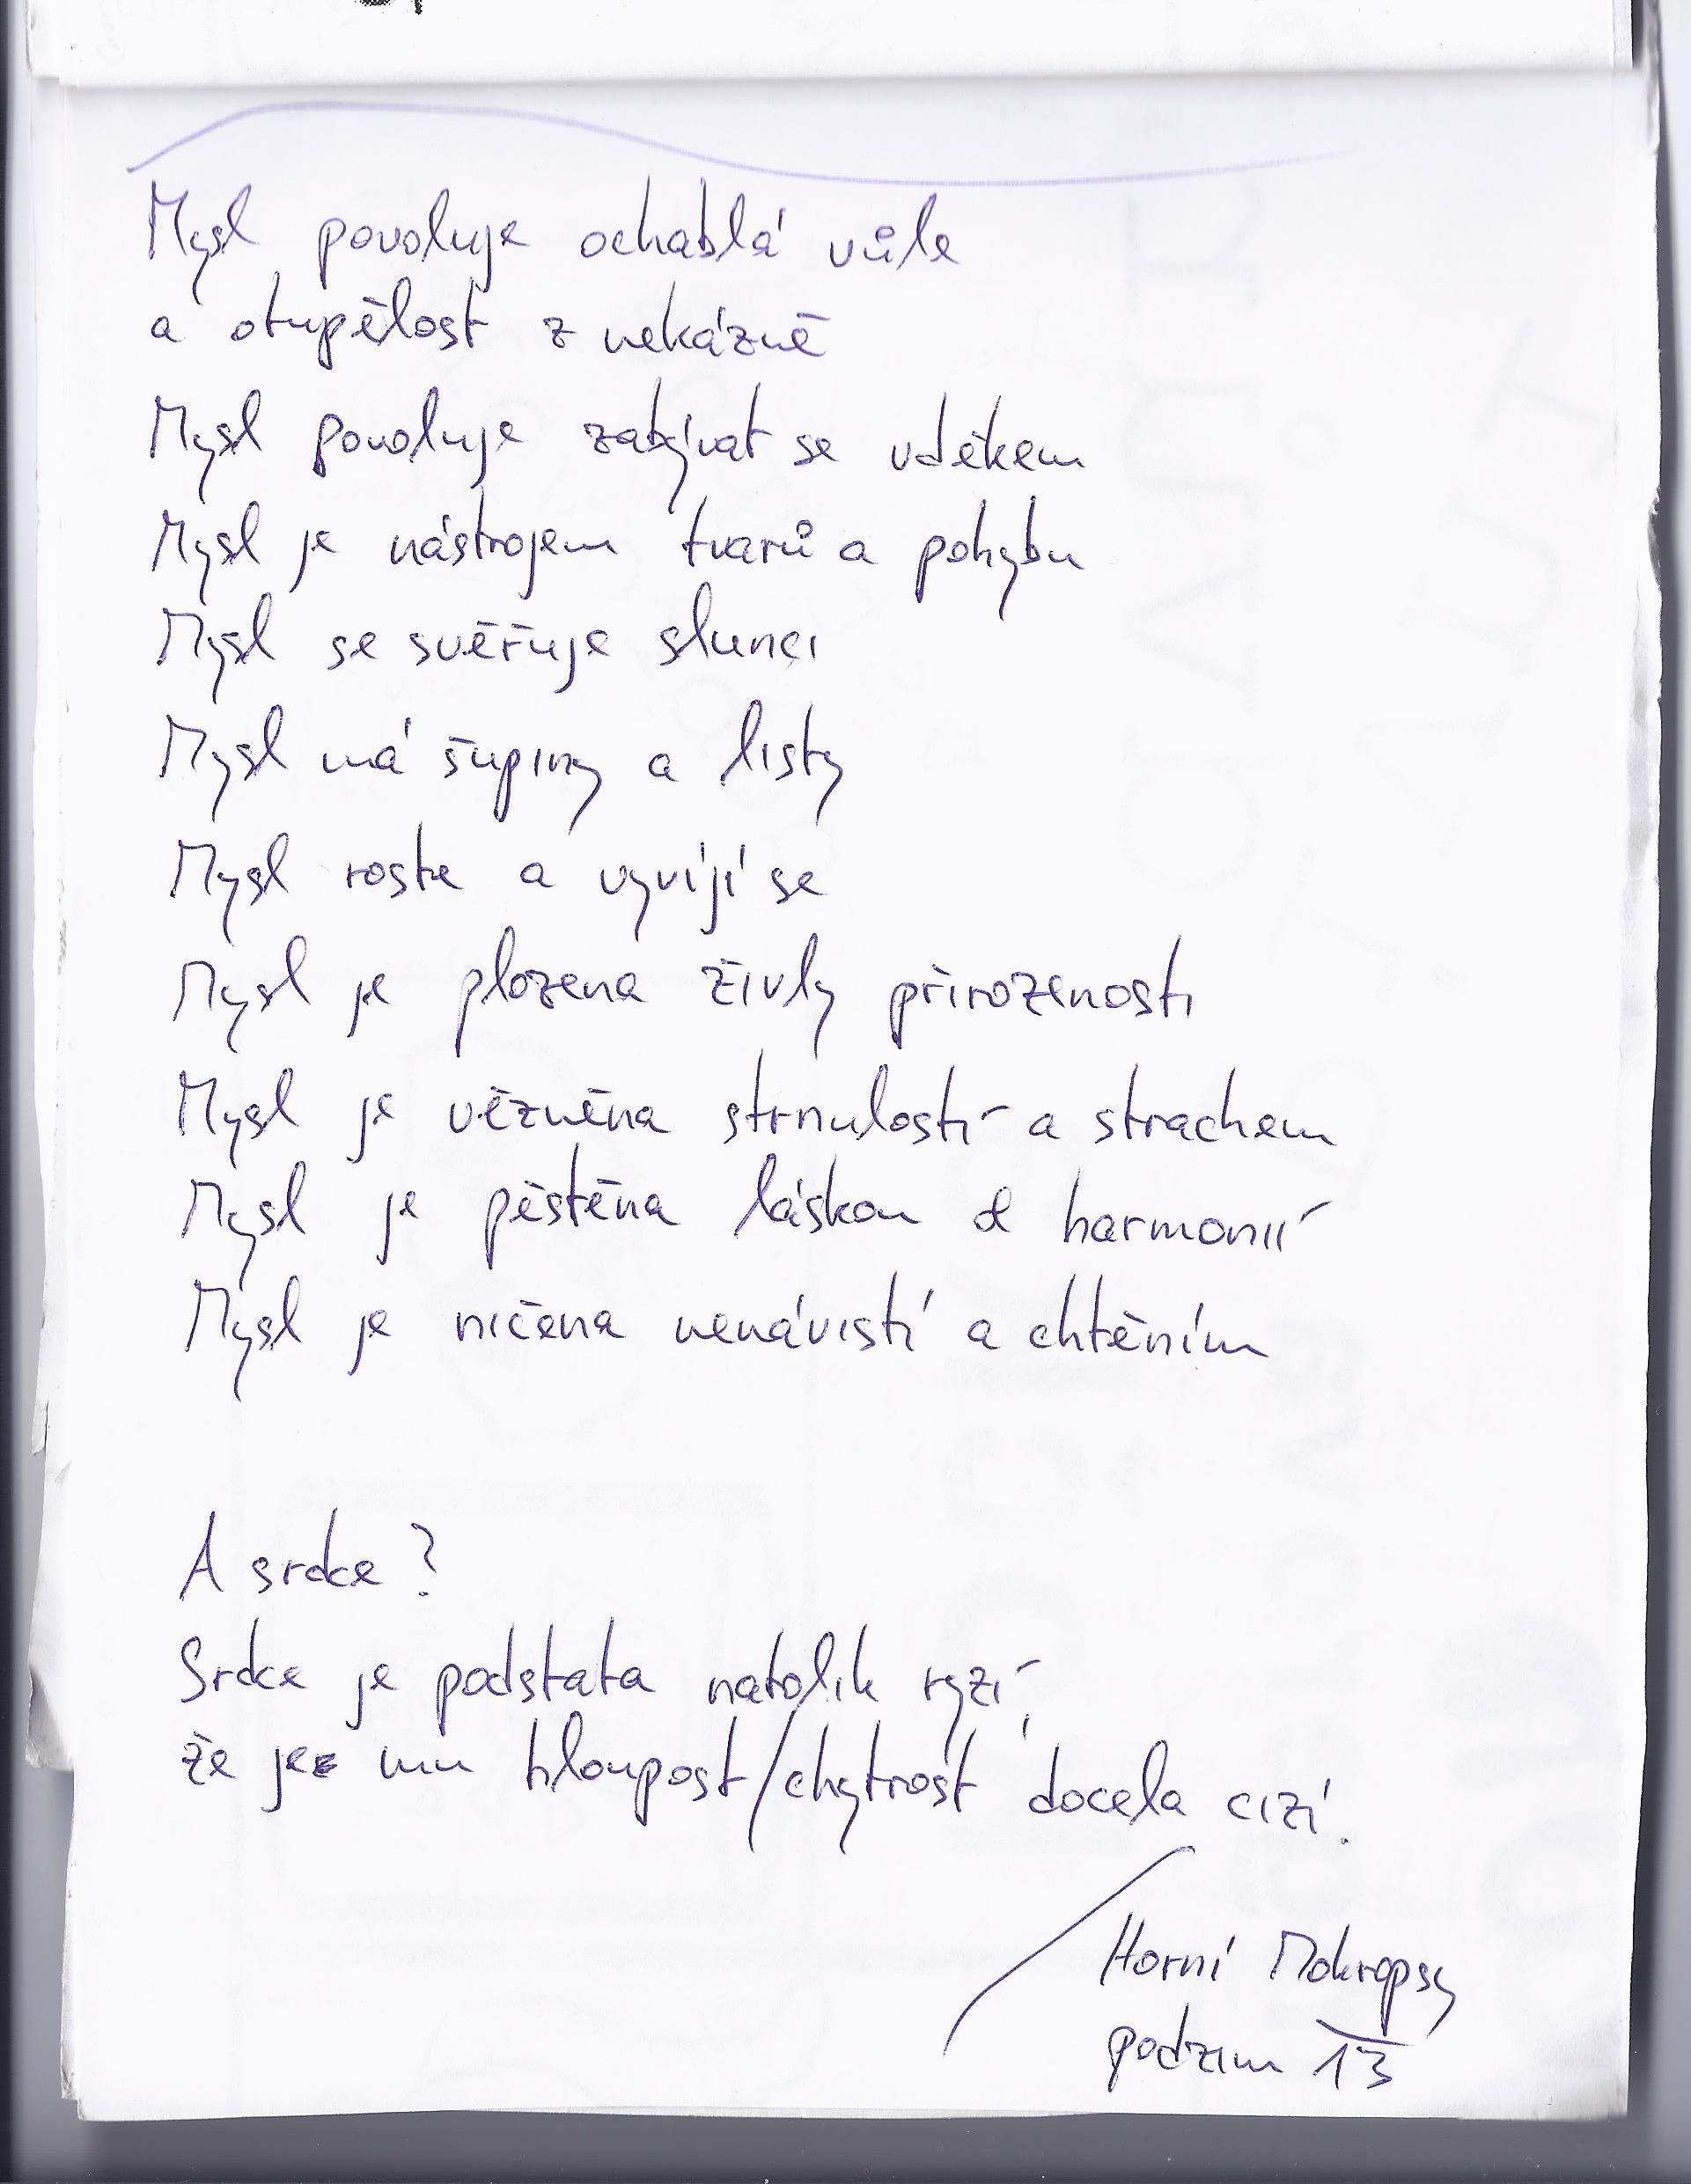 Mysl povoluje ochablá vůle
a otupělost z nekázně
Mysl povoluje zabývat se vděkem
Mysl je nástrojem tvarů a pohybu
Mysl se svěřuje slunci
Mysl má šupiny a listy
Mysl roste a vyvíjí se
Mysl je plozena živly přirozenosti
Mysl je vězněna strnulostí a strachem
Mysl je pěstěna láskou a harmonií
Mysl je ničena nenávistí a chtěním
A srdce?
Srdce je podstata natolik ryzí,
že je mu hloupost/chytrost docela cizí.
Horní Mokropsy
podzim 13